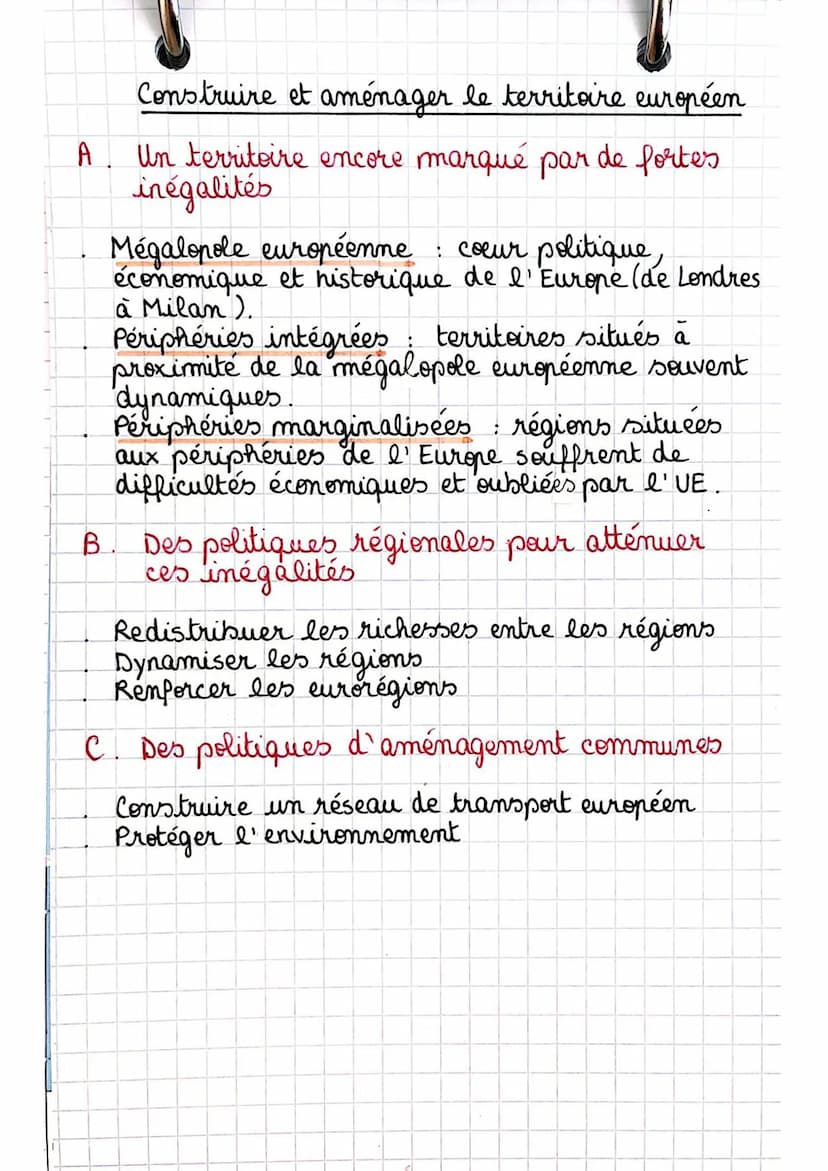 Construire et aménager le territoire européen
A. Un territoire encore marqué par de fortes
inégalités
. Mégalopole européenne : coeur politique,
économique et historique de l'Europe (de Londres
à Milan).
. Périphéries intégrées : territoires situés à
proximité de la mégalopole européenne souvent
dynamiques.
. Périphéries marginalisées : régions situées
aux périphéries de l'Europe souffrent de
difficultés économiques et oubliées par l'UE.
B. Des politiques régionales pour atténuer
ces inégalités
. Redistribuer les richesses entre les régions
. Dynamiser les régions
. Renforcer les eurorégions
C. Des politiques d'aménagement communes
. Construire un réseau de transport européen
. Protéger l'environnement